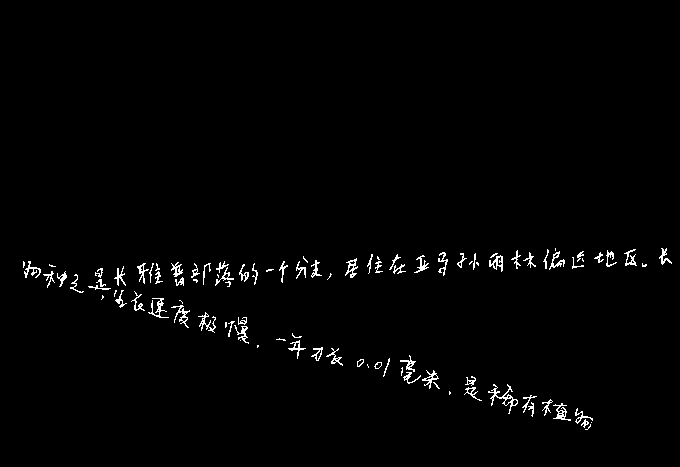 是卡雅普部落的一个分支，居住在亚马孙雨林偏远地区。长
物种之，生长速度极慢，一年才长0.01毫米，是稀有植物